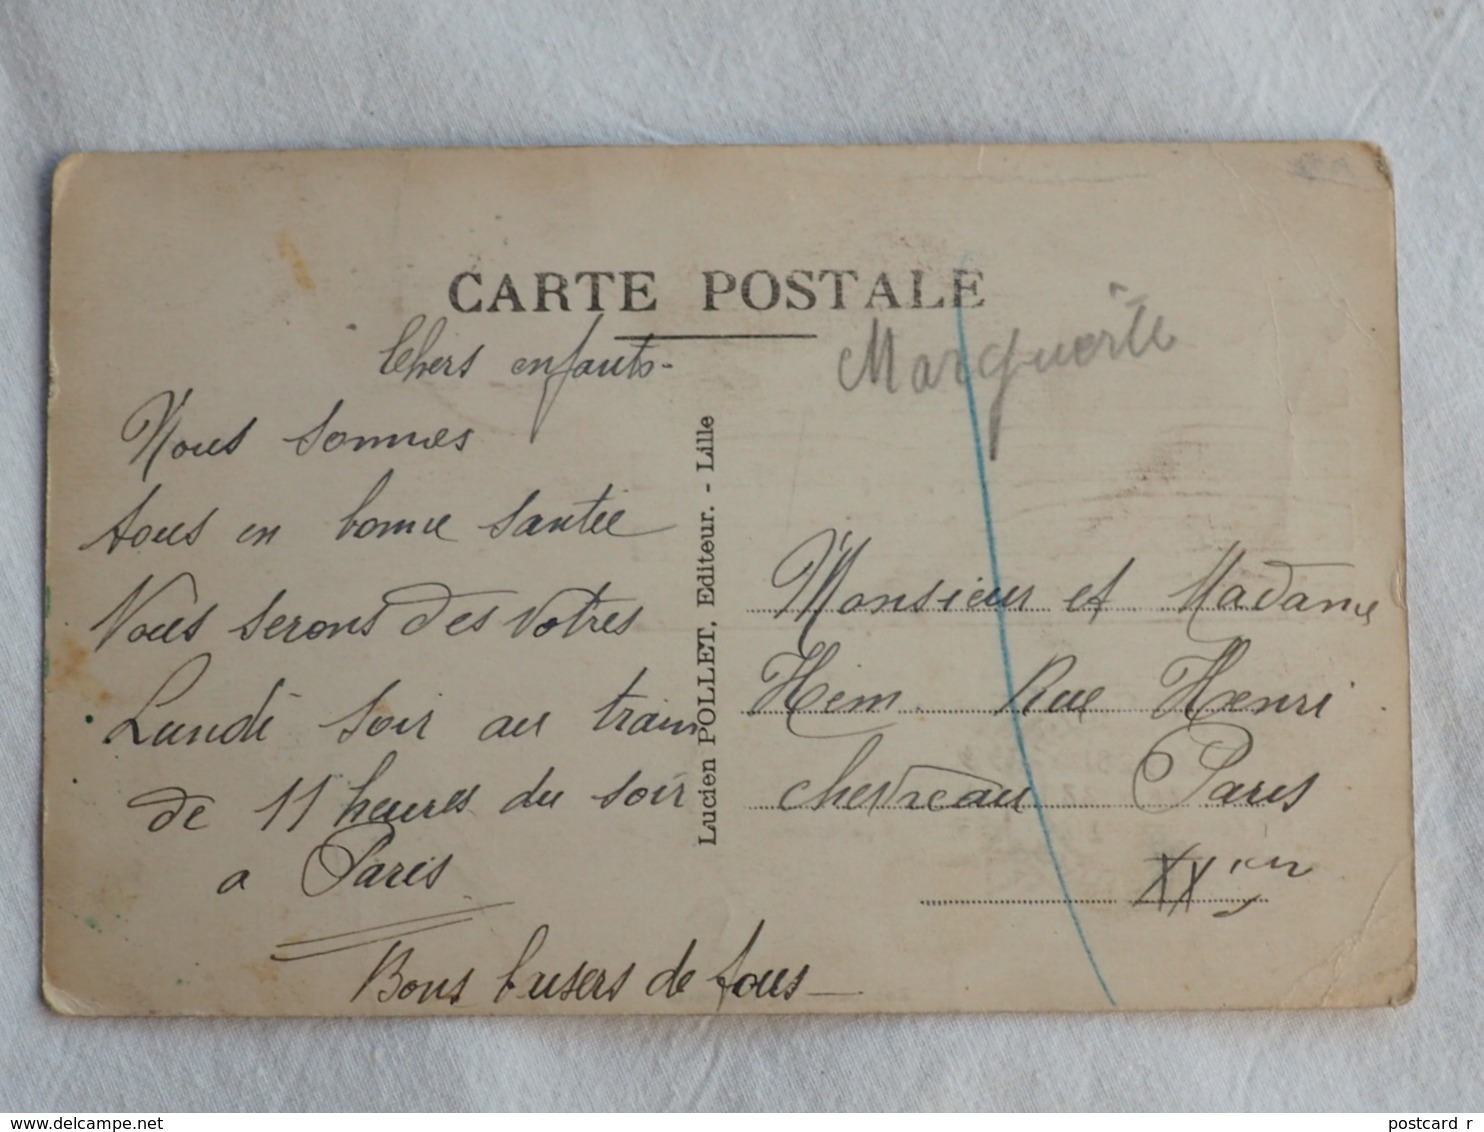 CARTE POSTALE
Chers enfants-
Nous sommes
tous en bonne santée
Nous serons des votres
Lundi soir au train
de 11 heures du soir
a Paris
Bons baisers de tous
Lucien POLLET, Editeur. - Lille
Marguerite
Monsieur et Madame
Hem. Rue Henri
chevreau Paris
XXieme
www.delcampe.net
postcard_r